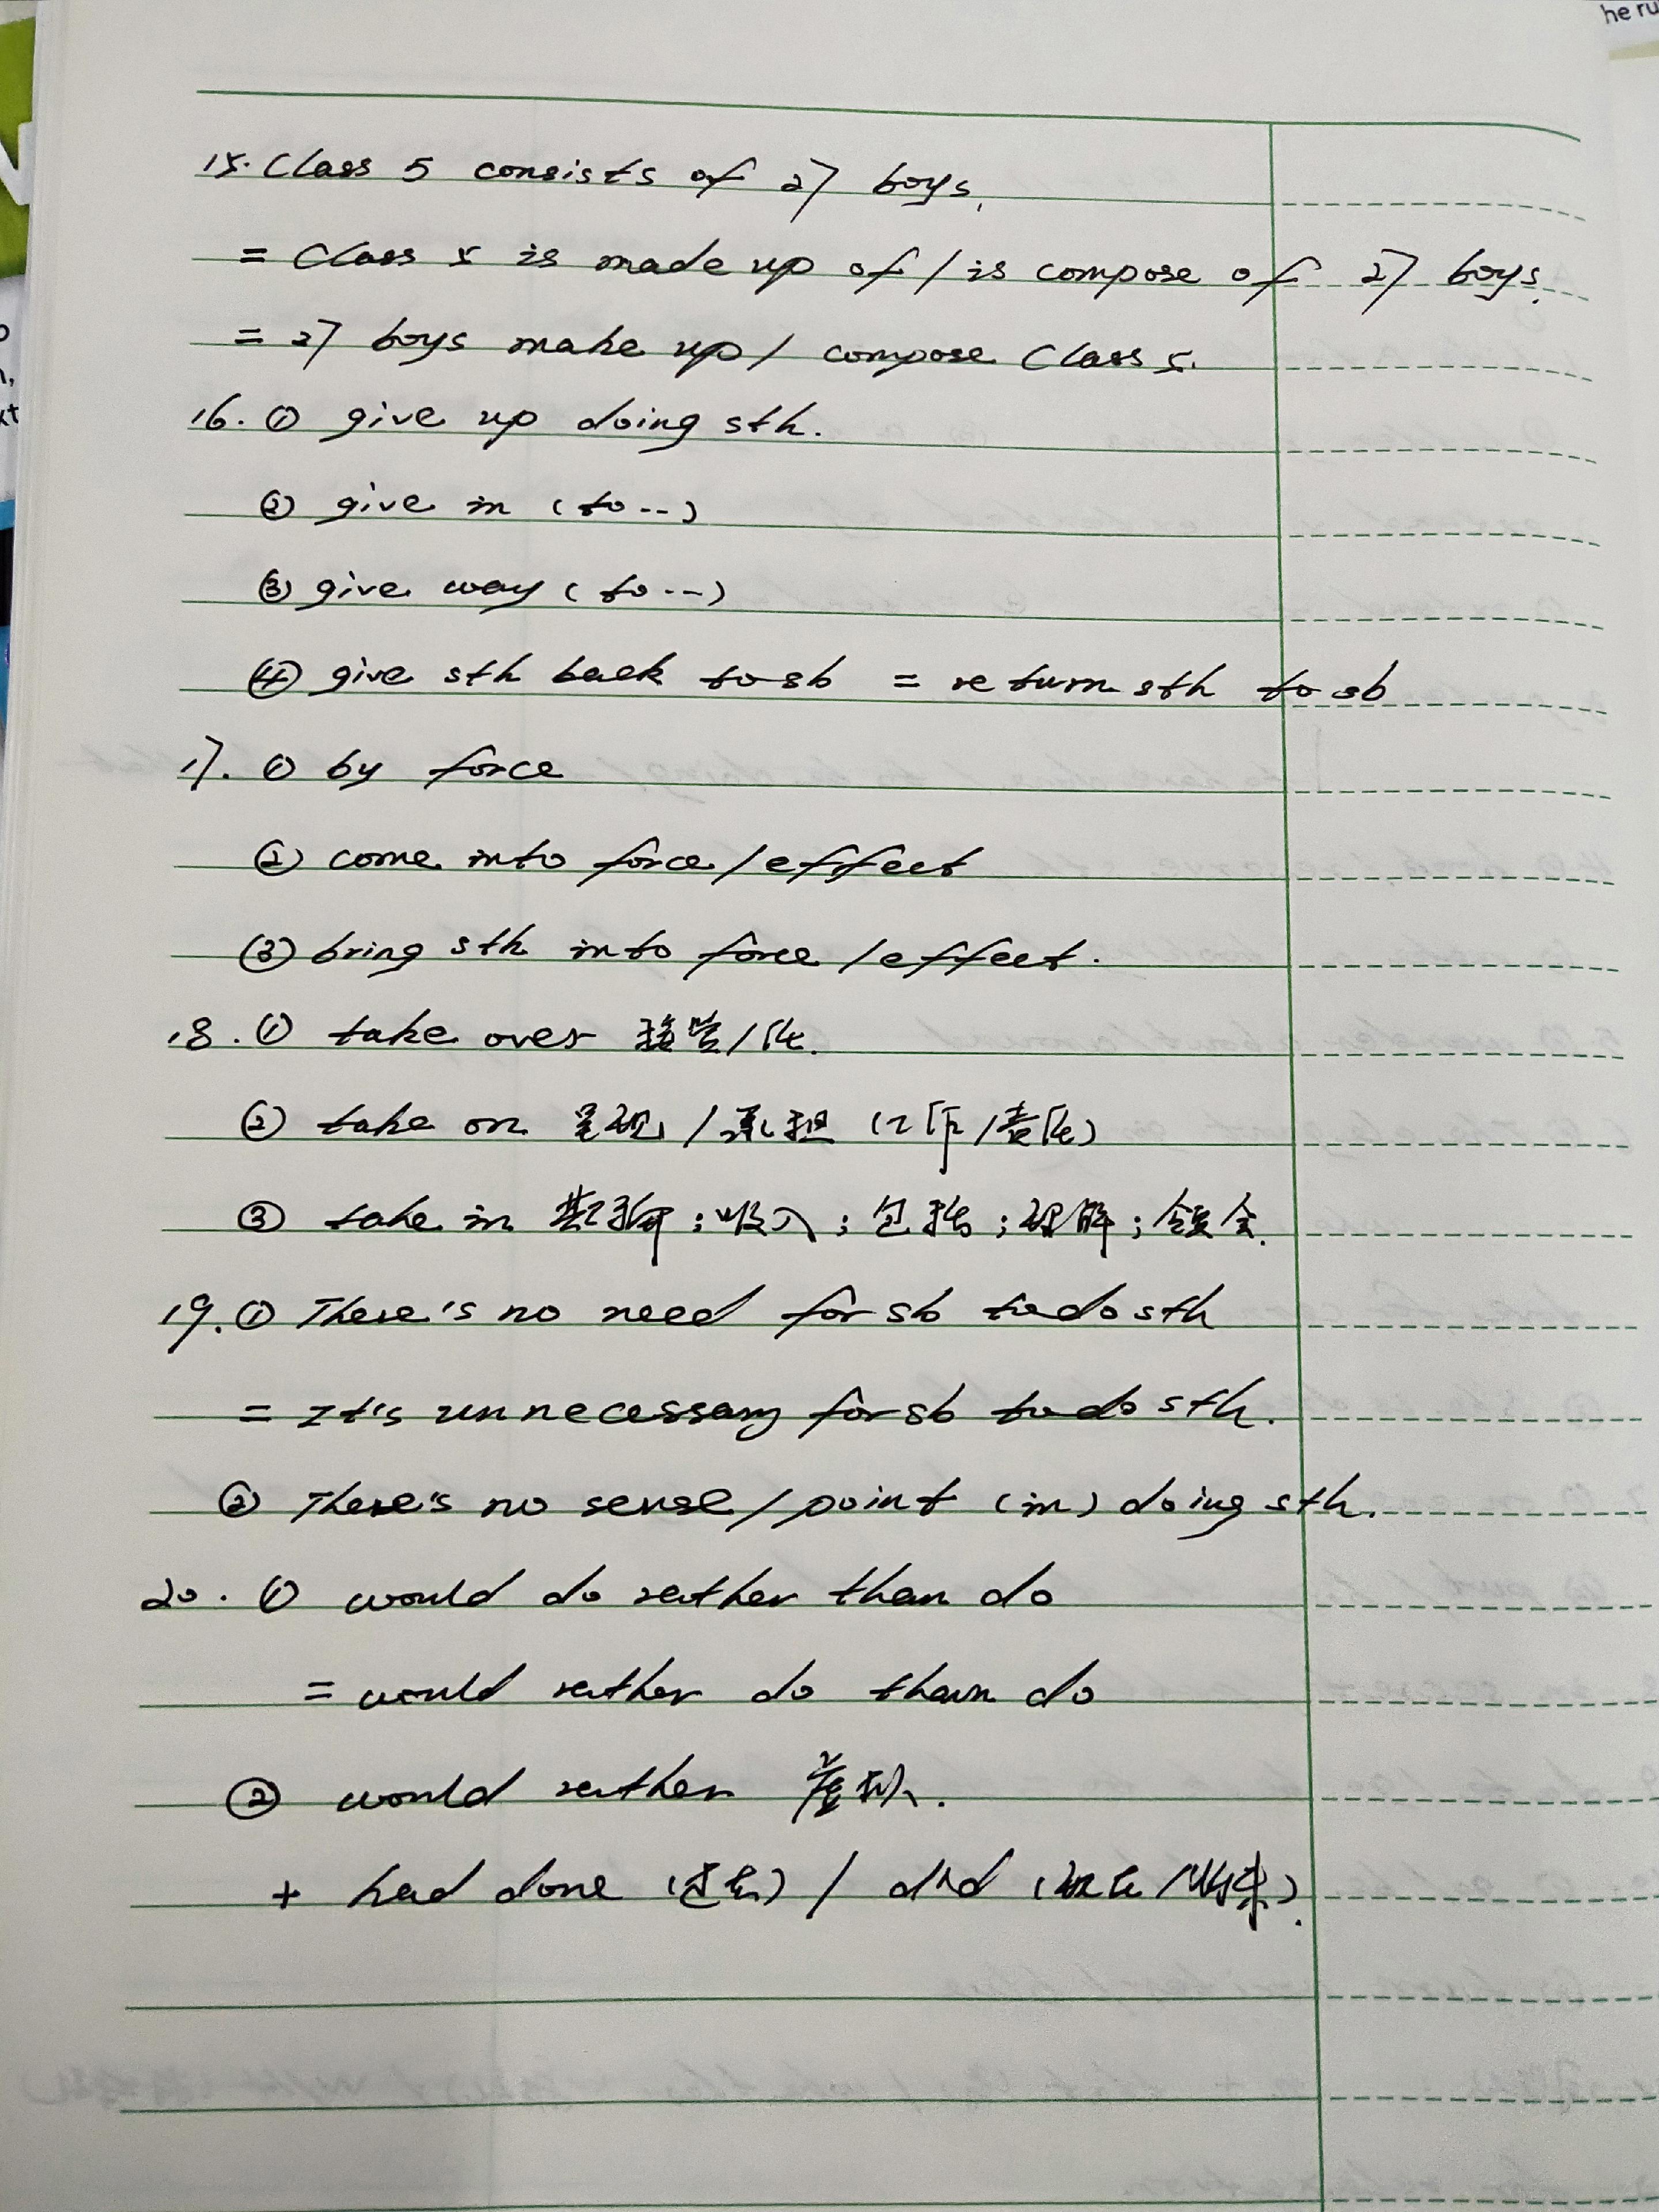 he ru
15. Class 5 consists of 27 boys.
= Class 5 is made up of / is compose of 27 boys.
= 27 boys make up / compose Class 5.
16. ① give up doing sth.
② give in (to...)
③ give way (to...)
④ give sth back to sb = return sth to sb
17. ① by force
② come into force / effect
③ bring sth into force / effect.
18. ① take over 接管/任.
② take on 呈现 / 承担 (工作/责任)
③ take in 欺骗; 收入; 包括; 理解; 领会.
19. ① There's no need for sb to do sth
= It's unnecessary for sb to do sth.
② There's no sense / point (in) doing sth.
20. ① would do rather than do
= would rather do than do
② would rather 虚拟.
+ had done (过去) / did (现在/将来).